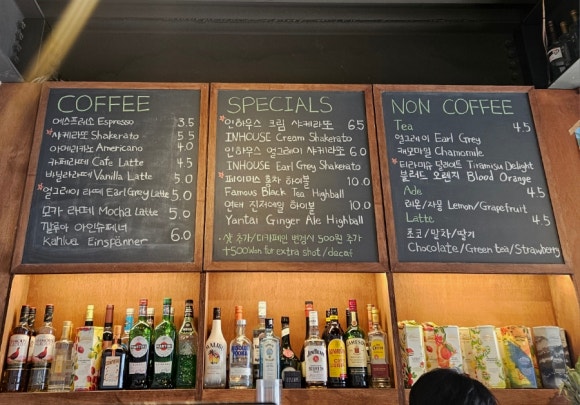 COFFEE
에스프레소 Espresso 3.5
*샤케라또 Shakerato 5.5
아메리카노 Americano 4.0
카페라떼 Cafe Latte 4.5
바닐라라떼 Vanilla Latte 5.0
*얼그레이 라떼 Earl Grey Latte 5.0
모카 라떼 Mocha Latte 5.0
깔루아 아인슈페너 6.0
Kahlua Einspänner
SPECIALS
*인하우스 크림 샤케라또 6.5
INHOUSE Cream Shakerato
인하우스 얼그레이 샤케라또 6.0
INHOUSE Earl Grey Shakerato
*페이머스 홍차 하이볼 10.0
Famous Black Tea Highball
얀태 진저에일 하이볼 10.0
Yantai Ginger Ale Highball
*샷 추가/디카페인 변경시 500원 추가
+500Won for extra shot/decaf
NON COFFEE
Tea 4.5
얼그레이 Earl Grey
캐모마일 Chamomile
*티라미수 딜라이트 Tiramisu Delight
블러드 오렌지 Blood Orange
Ade 4.5
레몬/자몽 Lemon/Grapefruit
Latte 4.5
초코/말차/딸기
Chocolate/Green tea/Strawberry
MALIBU
VODKA
MARTINI
JIM BEAM